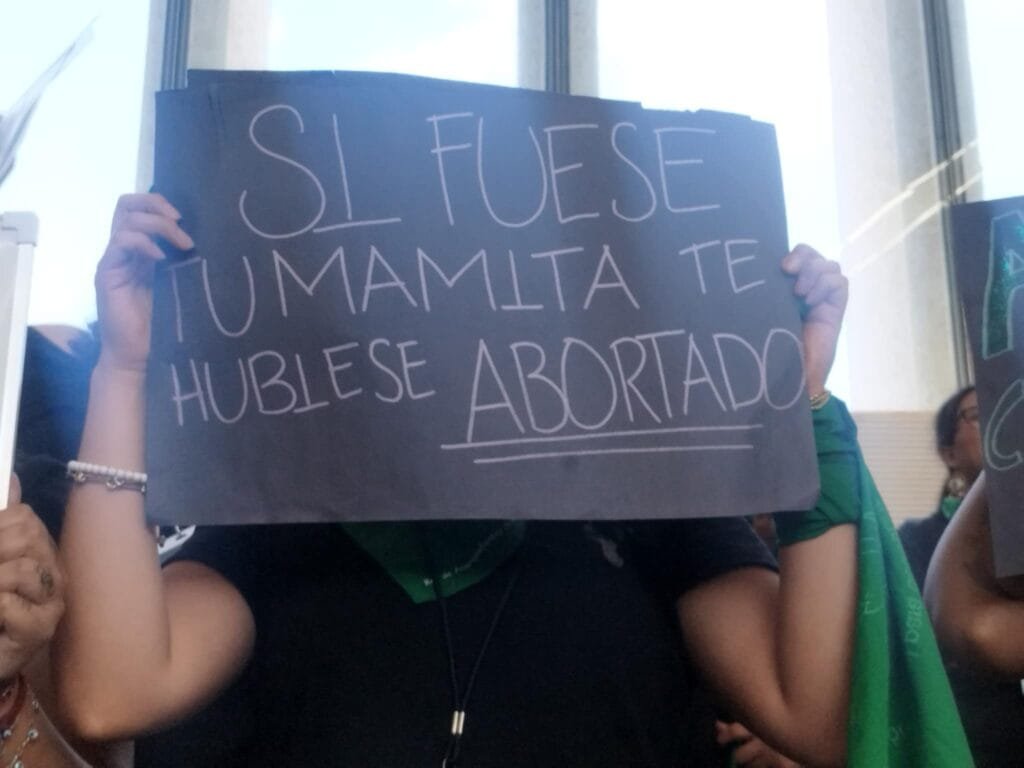 SI FUESE
TU MAMITA TE
HUBIESE ABORTADO